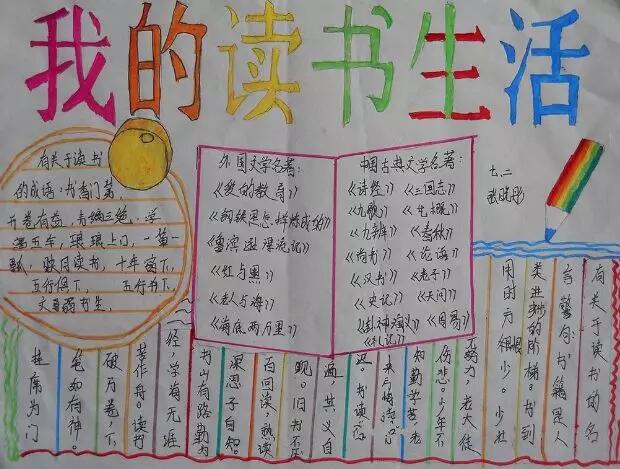 我的读书生活
有关于读书
的成语：书香门第，
开卷有益，韦编三绝，学
富五车，琅琅上口，一箪一
瓢，映月读书，十年窗下，
五行俱下，五行并下，
文弱书生。
外国文学名著：
《爱的教育》
《钢铁是怎样炼成的》
《鲁滨逊漂流记》
《红与黑》
《老人与海》
《海底两万里》
中国古典文学名著：
《诗经》《三国志》
《九歌》
《九辨》《春秋》
《尚书》《论语》
《汉书》《老子》
《史记》《天问》
《封神演义》《周易》
《礼记》
七、二
有关于读书的名
言警句：书籍是人
类进步的阶梯。书到
用时方恨很少。少壮
努力，老大徒
伤悲。少年不
知勤学苦，老
来
迟。书读百
遍，其义自
现。旧书不厌
百回读，熟读
深思子自知。
书山有路勤为
径，学海无涯
苦作舟。读书
破万卷，下
笔如有神。
为门